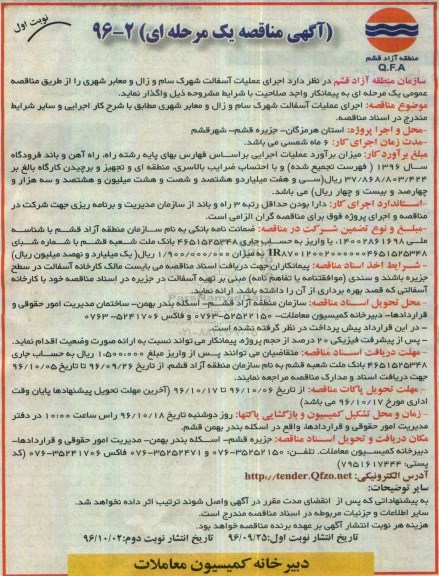 نوبت اول
(آگهی مناقصه یک مرحله ای) ۲-۹۶
منطقه آزاد قشم
Q.F.A
سازمان منطقه آزاد قشم در نظر دارد اجرای عملیات آسفالت شهرک سام و زال و معابر شهری را از طریق مناقصه
عمومی یک مرحله ای به پیمانکار واجد صلاحیت با شرایط مشروحه ذیل واگذار نماید.
موضوع مناقصه: اجرای عملیات آسفالت شهرک سام و زال و معابر شهری مطابق با شرح کار اجرایی و سایر شرایط
مندرج در اسناد مناقصه.
-محل و اجرا پروژه: استان هرمزگان- جزیره قشم- شهرقشم
-مدت زمان اجرای کار: ۶ ماه شمسی می باشد.
مبلغ برآورد کار: میزان برآورد عملیات اجرایی براساس فهارس بهای پایه رشته راه، راه آهن و باند فرودگاه
سال ۱۳۹۶ ( فهرست تجمیع شده) و با احتساب ضرایب بالاسری، منطقه ای و تجهیز و برچیدن کارگاه بالغ بر
۳۷/۸۶۸/۸۰۳/۴۲۴ ریال(سی و هفت میلیاردو هشتصد و شصت و هشت میلیون و هشتصد و سه هزار و
چهارصد و بیست و چهار ریال) می باشد.
-استاندارد اجرای کار: دارا بودن حداقل رتبه ۳ راه و باند از سازمان مدیریت و برنامه ریزی جهت شرکت در
مناقصه و اجرای پروژه فوق برای مناقصه گران الزامی است.
-مبلغ و نوع تضمین شرکت در مناقصه: ضمانت نامه بانکی به نام سازمان منطقه آزاد قشم با شناسه
ملی ۱۴۰۰۲۸۶۱۶۹۸، یا واریز به حساب جاری ۴۶۵۱۵۲۵۳۴۸ بانک ملت شعبه قشم با شماره شبای
به میزان ۱/۹۰۰/۰۰۰/۰۰۰ ریال(یک میلیارد و نهصد میلیون ریال)
- شرایط اخذ اسناد مناقصه: پیمانکاران جهت دریافت اسناد مناقصه می بایست مالک کارخانه آسفالت در سطح
جزیره باشند و سندی (موافقتنامه یا تفاهم نامه) مبنی بر تهیه آسفالت در جزیره در اسناد مناقصه خود با کارخانه
آسفالتی که قصد بهره برداری از آن را داشته باشد، ارائه نماید.
- محل تحویل اسناد مناقصه: سازمان منطقه آزاد قشم- اسکله بندر بهمن- ساختمان مدیریت امور حقوقی و
قراردادها- دبیرخانه کمیسیون معاملات- ۳۵۲۵۲۱۵۰-۰۷۶۳ و فاکس ۵۲۴۱۷۰۶-۰۷۶۳
- در این قرارداد پیش پرداخت در نظر گرفته نشده است.
- پس از پیشرفت فیزیکی ۲۰ درصد از حجم پروژه، پیمانکار می تواند نسبت به ارائه صورت وضعیت اقدام نماید.
- مهلت دریافت اسناد مناقصه: متقاضیان می توانند پس از واریز مبلغ ۱،۵۰۰،۰۰۰ ریال به حساب جاری
۴۶۵۱۵۲۵۳۴۸ بانک ملت شعبه قشم به نام سازمان منطقه آزاد قشم، از تاریخ ۹۶/۰۹/۲۶ تا تاریخ ۹۶/۱۰/۰۵
جهت دریافت اسناد و مدارک مناقصه مراجعه نمایند.
- مهلت تحویل پاکات مناقصه: از تاریخ ۹۶/۱۰/۰۶ تا ۹۶/۱۰/۱۷ (آخرین مهلت تحویل پیشنهادها پایان وقت
اداری مورخ ۹۶/۱۰/۱۷ می باشد)
- زمان و محل تشکیل کمیسیون و بازگشایی پاکتها: روز دوشنبه تاریخ ۹۶/۱۰/۱۸ راس ساعت ۱۰:۰۰ در دفتر
مدیریت امور حقوقی و قراردادها، واقع در اسکله بندر بهمن قشم.
مکان دریافت و تحویل اسناد مناقصه: جزیره قشم- اسکله بندر بهمن- مدیریت امور حقوقی و قراردادها-
دبیرخانه کمیسیون معاملات. تلفن: ۳۵۲۵۲۱۵۰-۰۷۶ و ۳۵۲۵۲۴۷۱-۰۷۶ فاکس ۳۵۲۴۱۷۰۶-۰۷۶ (کد
پستی: ۷۹۵۱۶۱۷۴۴۴)
آدرس الکترونیکی: http://tender.Qfzo.net
سایر توضیحات:
به پیشنهاداتی که پس از انقضای مدت مقرر در آگهی واصل شوند ترتیب اثر داده نخواهد شد.
سایر اطلاعات و جزئیات مربوطه در اسناد مناقصه مندرج است.
هزینه هر نوبت انتشار آگهی بر عهده برنده مناقصه خواهد بود.
تاریخ انتشار نوبت اول: ۹۶/۰۹/۲۵ تاریخ انتشار نوبت دوم: ۹۶/۱۰/۰۲
دبیرخانه کمیسیون معاملات